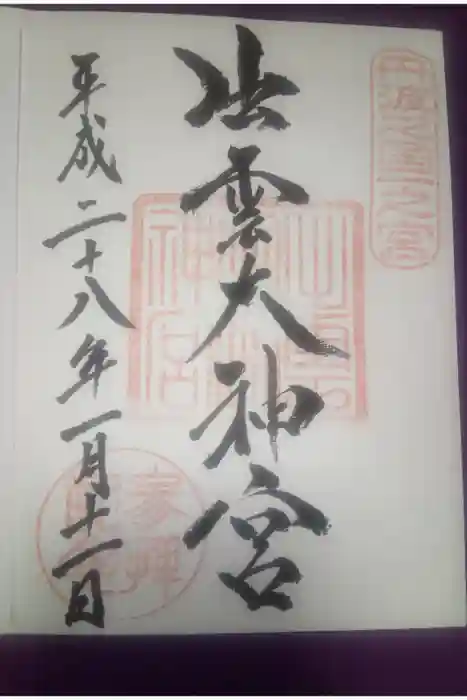 丹波國一之宮
出雲大神宮
出雲大神宮
平成二十八年一月十一日
参拝